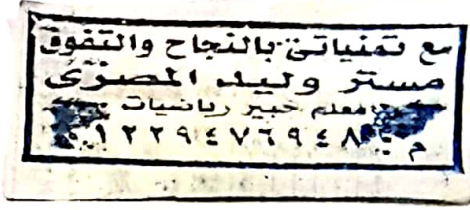 مع تمنياتى بالنجاح والتفوق
مستر وليد المصرى
معلم خبير رياضيات
م / ٠١٢٢٩٤٧٦٩٤٨